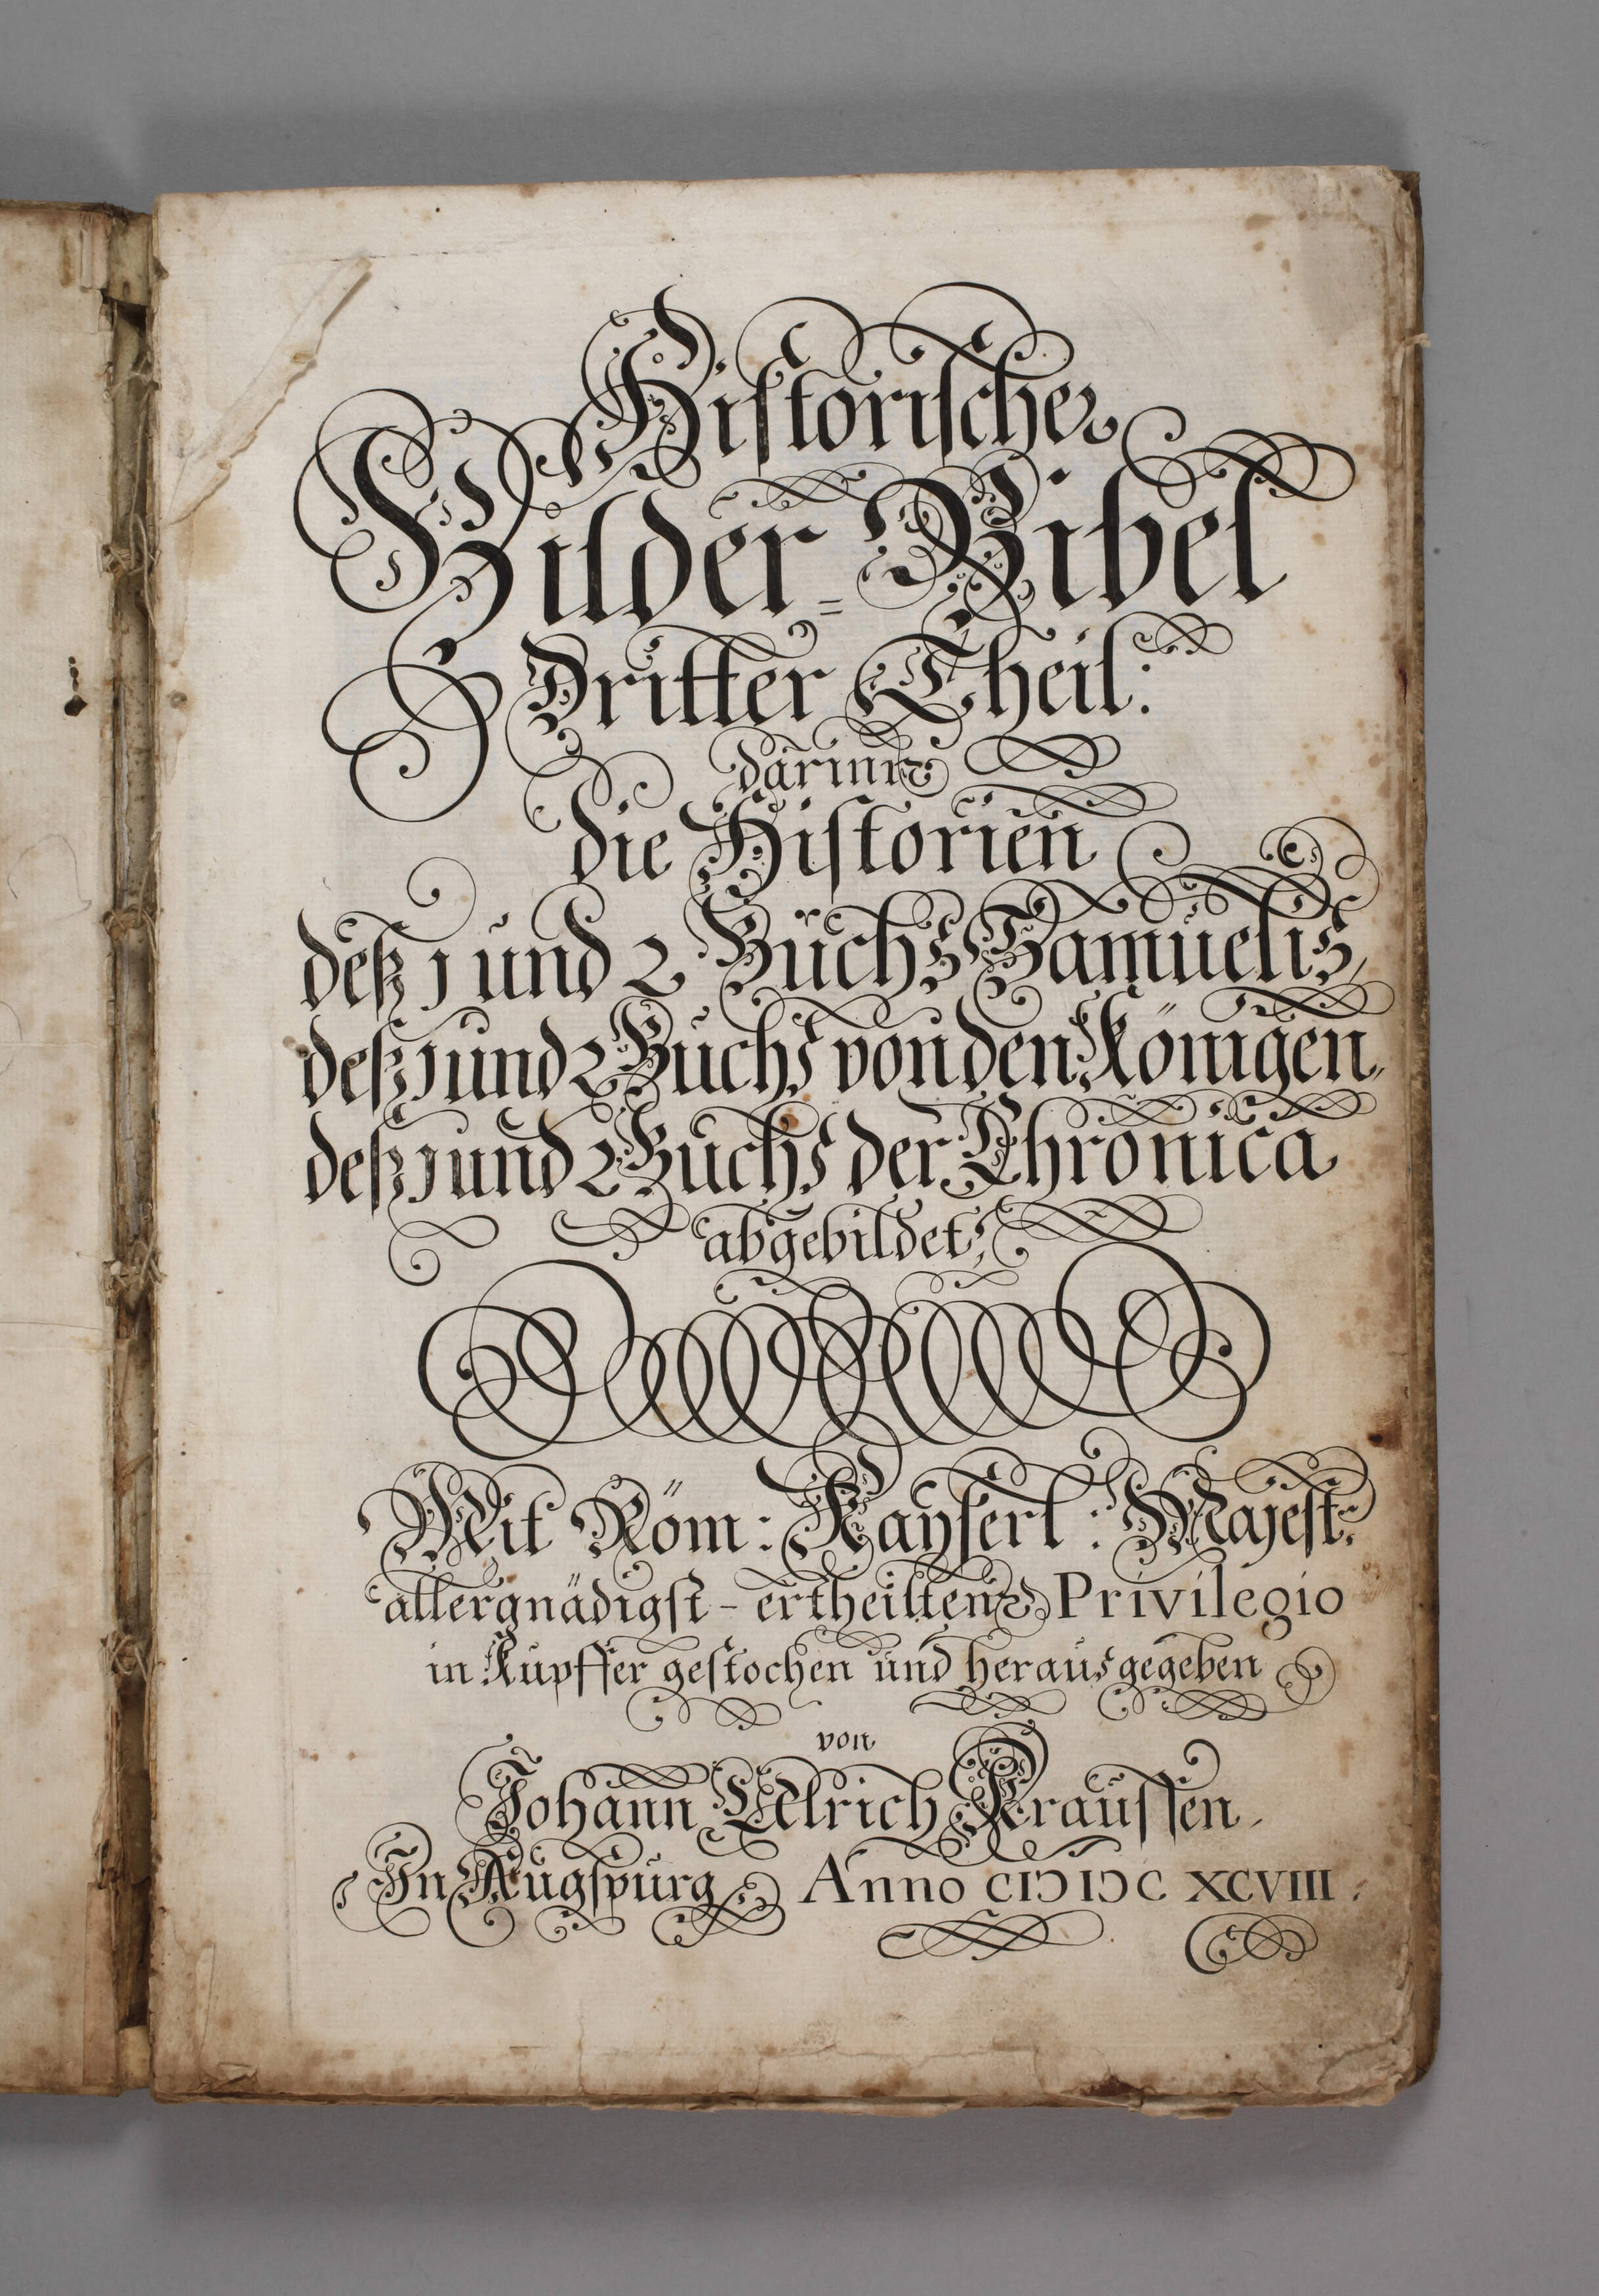 Historischer
Bilder=Bibel
Dritter Theil:
darinn
die Historien
deß 1 und 2 Buchs Samuelis,
deß 1 und 2 Buchs von den Königen,
deß 1 und 2 Buchs der Chronica
abgebildet;
Mit Röm: Kayserl: Majest:
allergnädigst-ertheilten Privilegio
in Kupffer gestochen und heraus gegeben
von
Johann Ulrich Kraussen.
In Augspurg Anno CIↃ IↃC XCVIII.